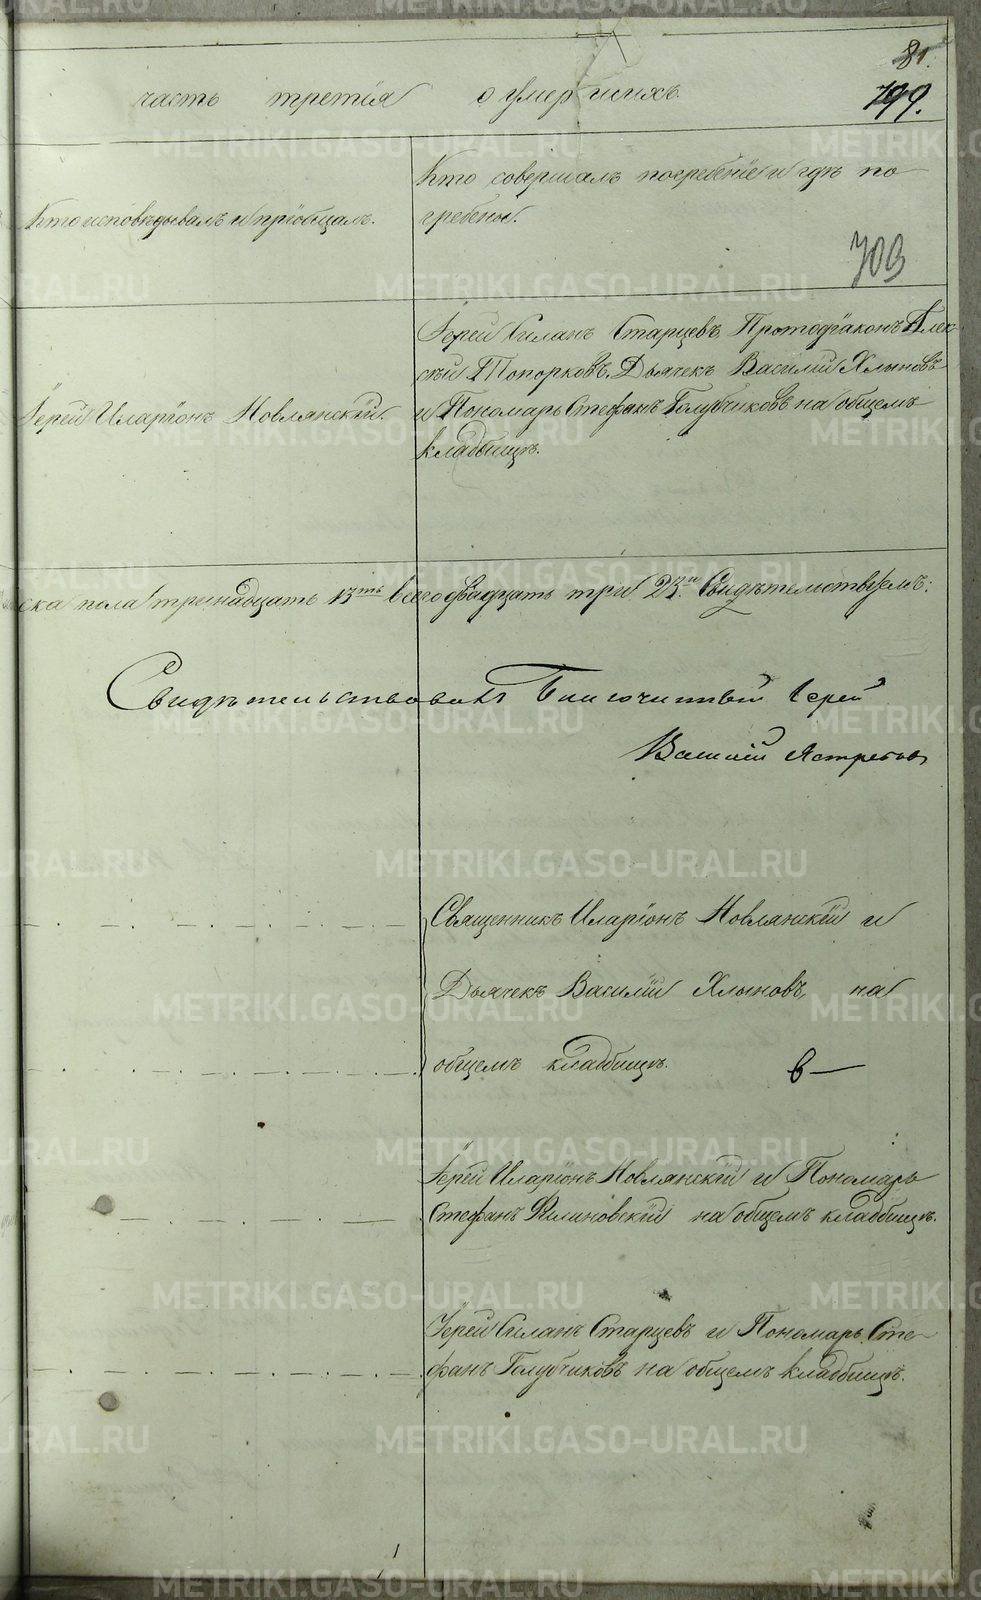 81.
199.
часть третія о умершихъ.
Кто исповѣдывалъ и пріобщалъ.
Кто совершалъ погребеніе и гдѣ по
гребены.
703
Іерей Иларіонъ Новлянскій.
Іерей Силанъ Старцевъ, Протодіаконъ Алек-
сѣй Топорковъ, Дьячекъ Василій Хлыновъ
и Пономарь Стефанъ Голубчиковъ на общемъ
кладбищѣ.
ска пола тринадцать 13ть всего двадцать три 23.и Свидѣтельствуемъ:
Свидѣтельствовалъ Благочинный Іерей
Василій Ястребовъ
Священникъ Иларіонъ Новлянскій и
Дьячекъ Василій Хлыновъ, на
общемъ кладбищѣ.
в —
Іерей Иларіонъ Новлянскій и Пономарь
Стефанъ на общемъ кладбищѣ.
Іерей Силанъ Старцевъ и Пономарь Сте-
фанъ Голубчиковъ на общемъ кладбищѣ.
METRIKI.GASO-URAL.RU